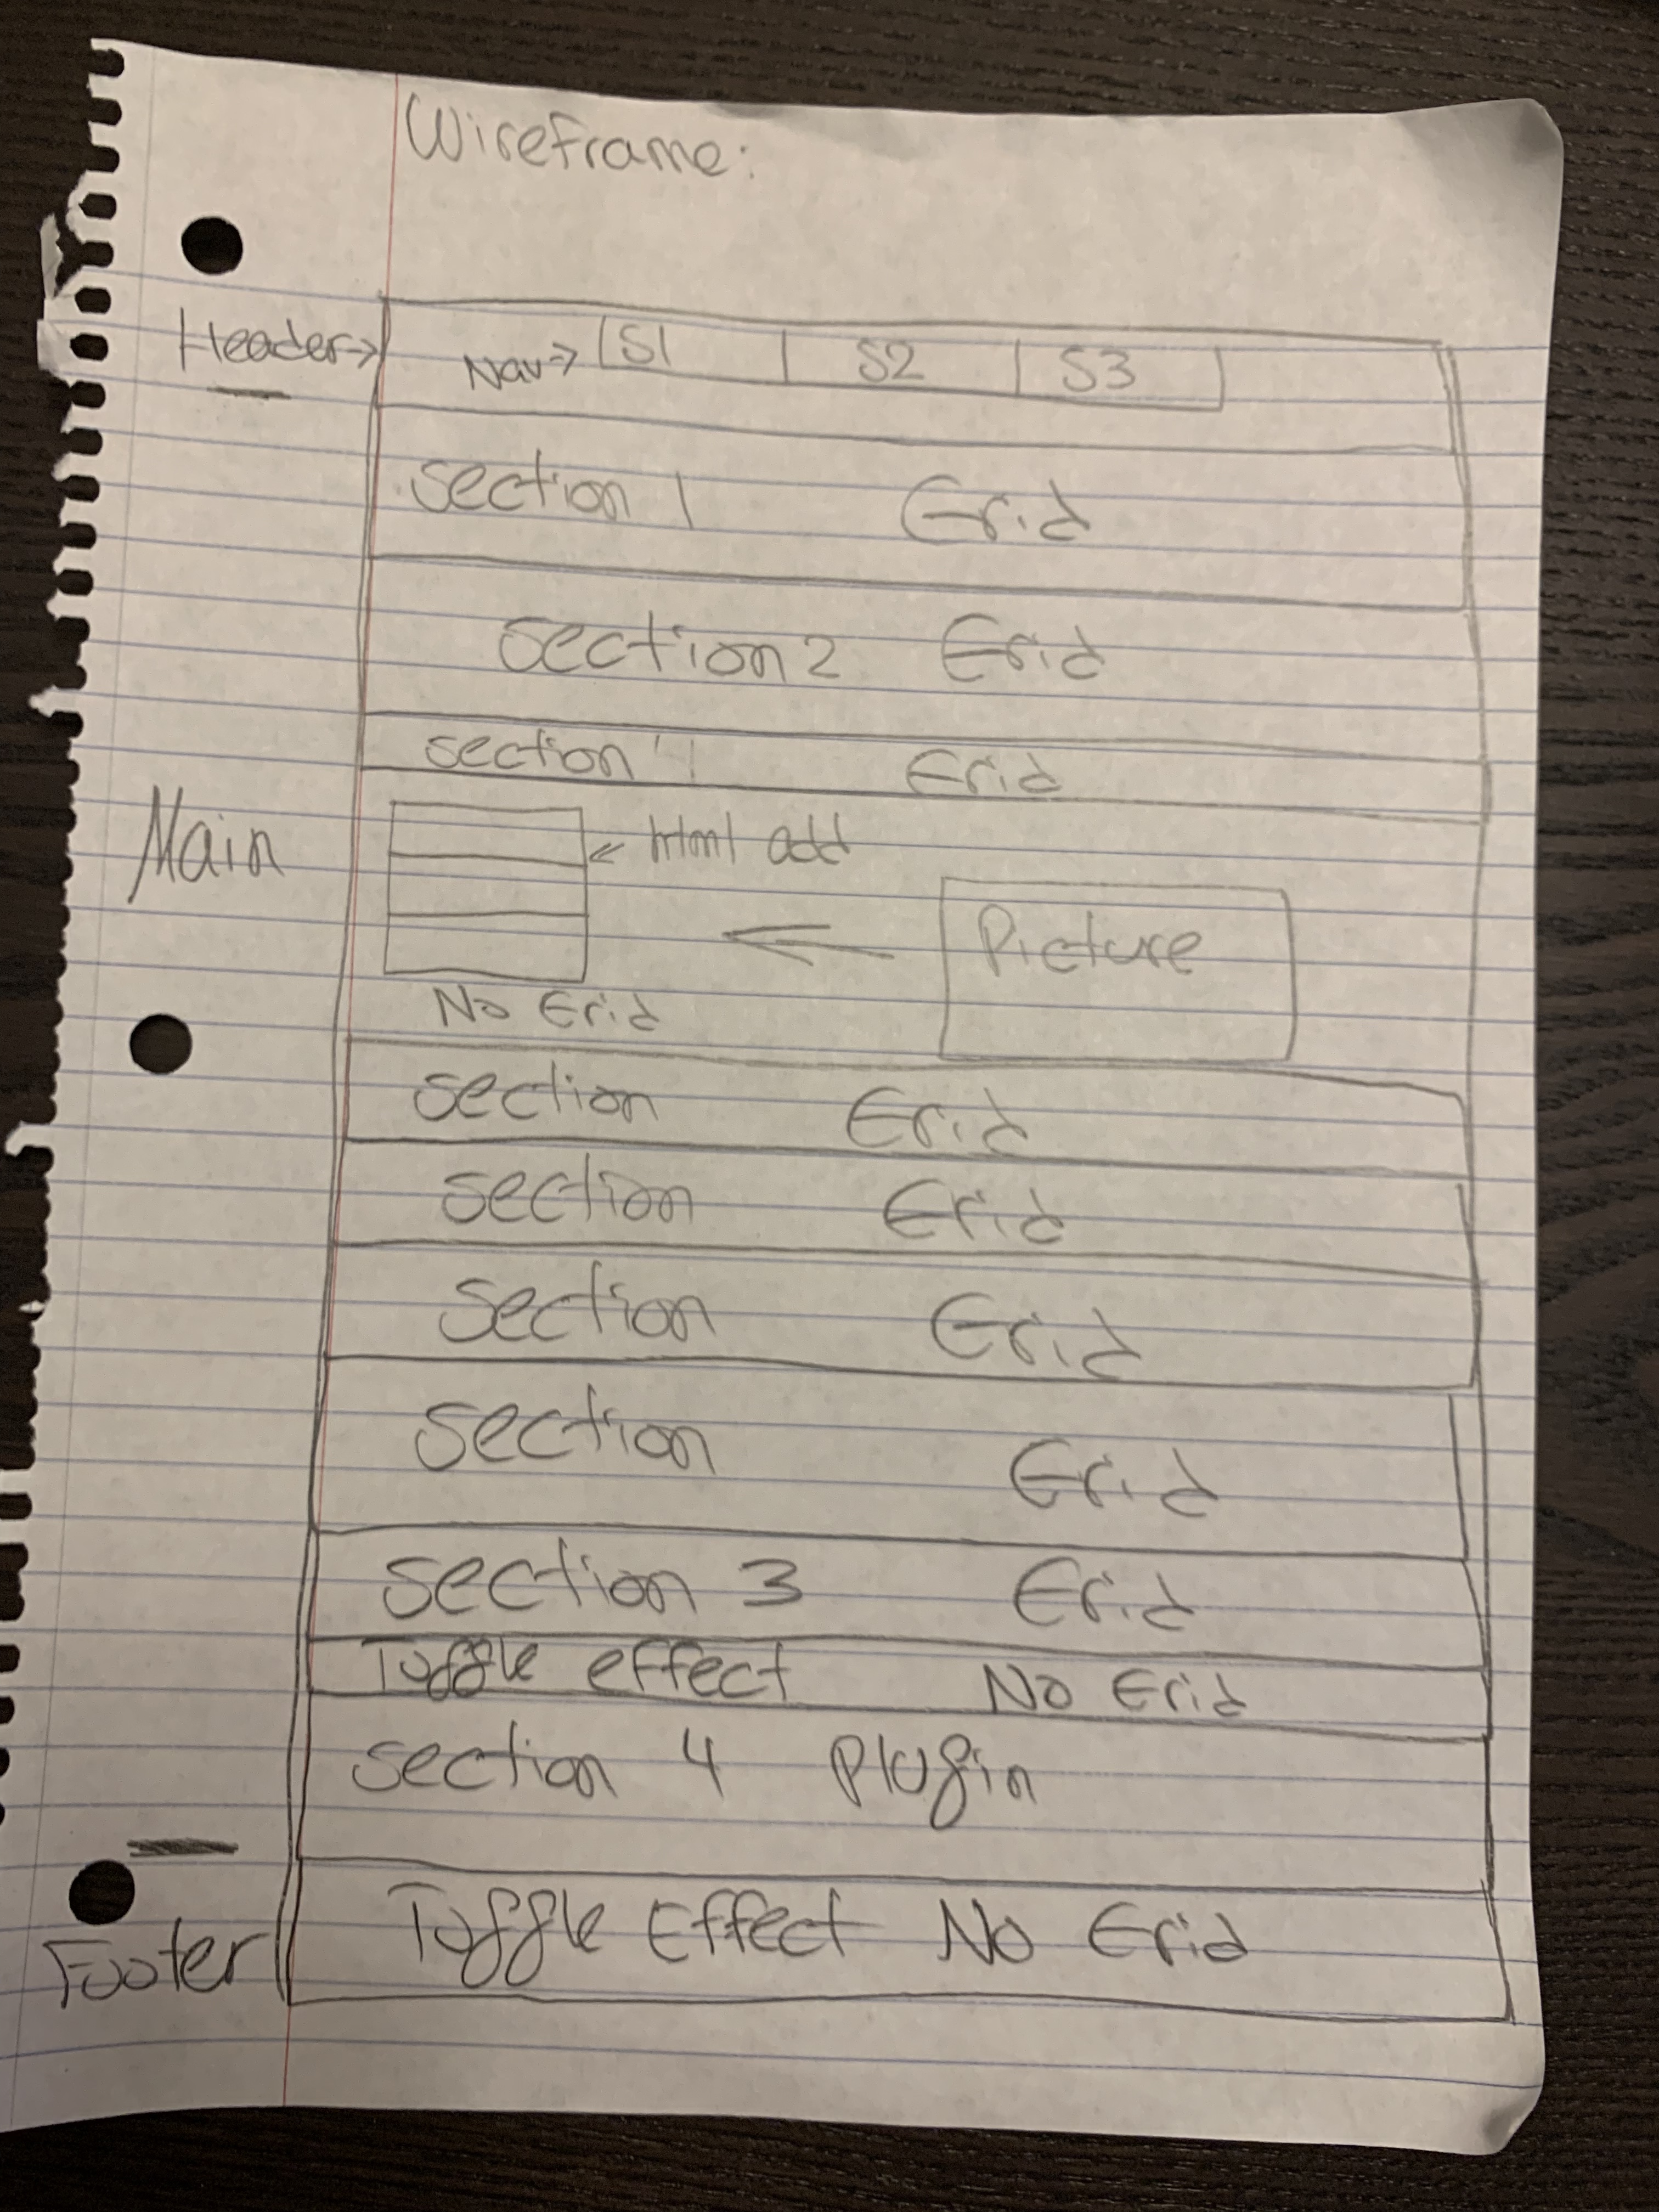 Wireframe:
Header→ Nav→ S1 S2 S3
section 1 Grid
section 2 Grid
section Grid
← html add
Main
← Picture
No Grid
section Grid
section Grid
section Grid
section Grid
section 3 Grid
Toggle effect No Grid
section 4 Plugin
Toggle Effect No Grid
Footer